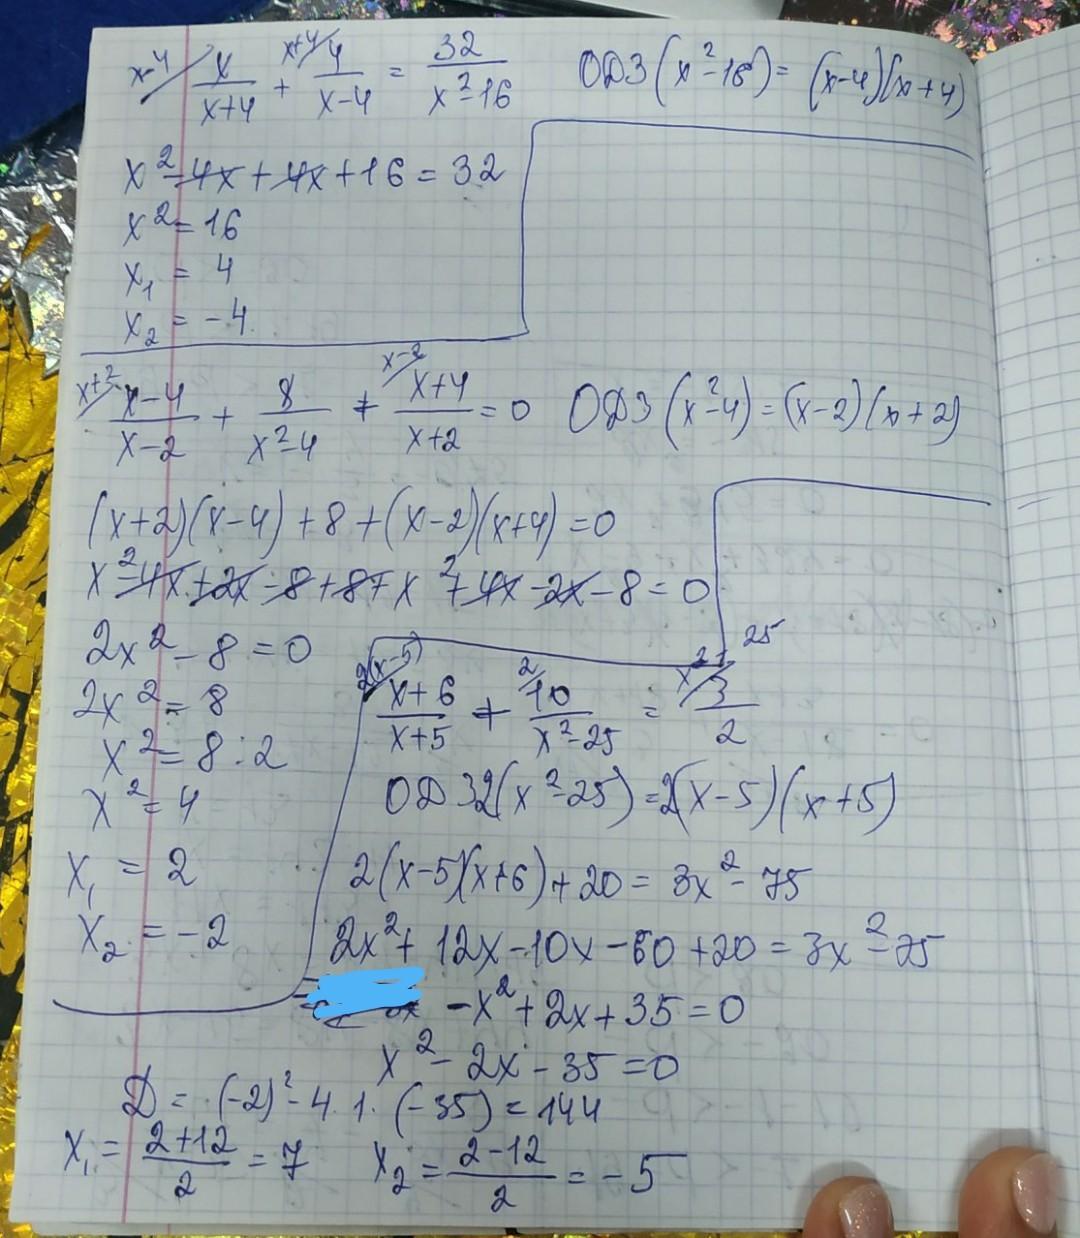 x-4/ x/(x+4) + x+4/ 4/(x-4) = 32/(x²-16)   ОДЗ (x²-16) = (x-4)(x+4)
x²-4x+4x+16=32
x²=16
x₁ = 4
x₂ = -4.
x+2/ (x-4)/(x-2) + 8/(x²-4) + x-2/ (x+4)/(x+2) = 0   ОДЗ (x²-4) = (x-2)(x+2)
(x+2)(x-4)+8+(x-2)(x+4)=0
x²-4x+2x-8+8+x²+4x-2x-8=0
2x²-8=0
2x²=8
x²=8:2
x²=4
x₁ = 2
x₂ = -2
2(x-5)/ (x+6)/(x+5) + 2/ 10/(x²-25) = x²-25/ 3/2
ОДЗ 2(x²-25)=2(x-5)(x+5)
2(x-5)(x+6)+20=3x²-75
2x²+12x-10x-60+20=3x²-75
-x²+2x+35=0
x²-2x-35=0
Д = (-2)²-4.1.(-35)=144
x₁ = (2+12)/2 = 7   x₂ = (2-12)/2 = -5